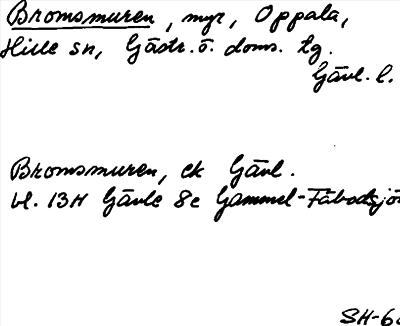 Bromsmuren, myr, Oppala,
Hille sn, Gästr. ö. doms. tg.
Gävl. l.
Bromsmuren, ek Gävl.
bl. 13H Gävle 8c Gammel-Fäbodsjö
SH-6